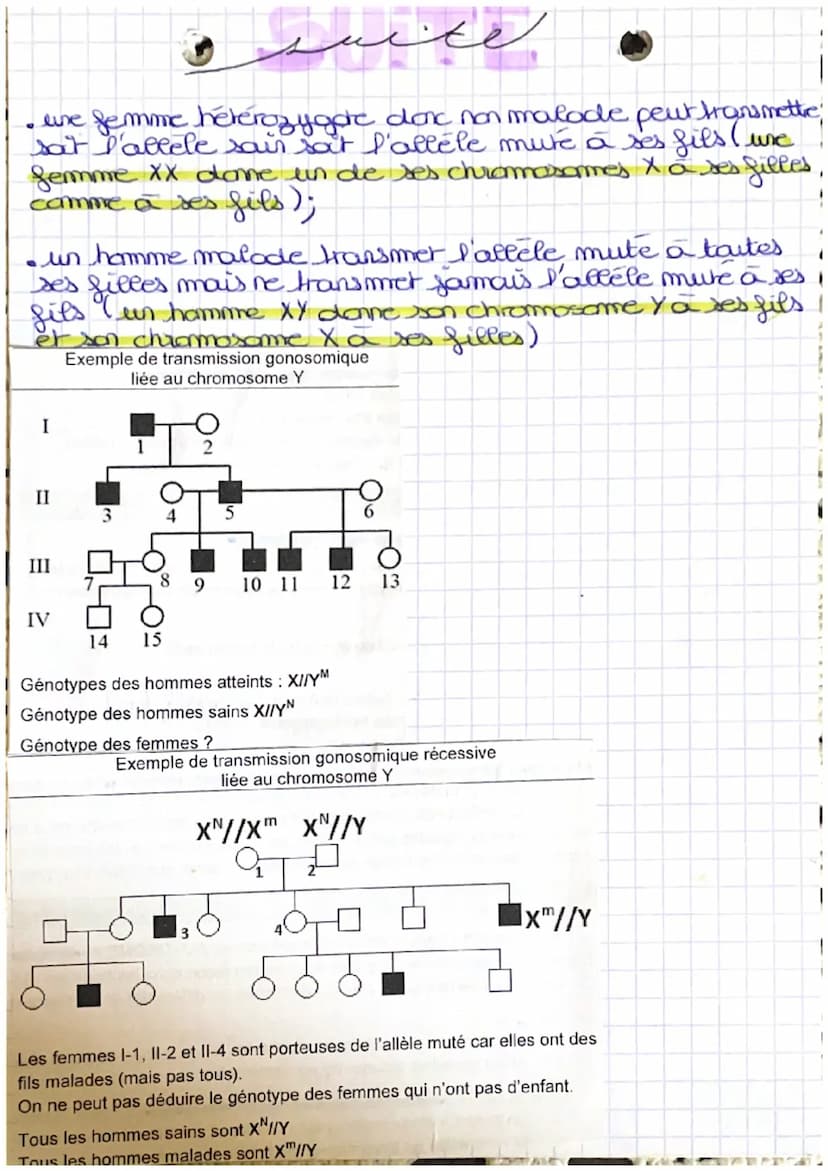 SUITE
suite
• une femme hétérozygote donc non malade peut transmettre
soit l'allèle sain soit l'allèle muté à ses fils (une
femme XX donne un de ses chromosomes X à ses filles
comme à ses fils);
• un homme malade transmet l'allèle muté à toutes
ses filles mais ne transmet jamais l'allèle muté à ses
fils (un homme XY donne son chromosome Y à ses fils
et son chromosome X à ses filles)
Exemple de transmission gonosomique
liée au chromosome Y
I
1 2
II
3 4 5 6
III
7 8 9 10 11 12 13
IV
14 15
Génotypes des hommes atteints : X//Yᴹ
Génotype des hommes sains X//Yᴺ
Génotype des femmes ?
Exemple de transmission gonosomique récessive
liée au chromosome Y
Xᴺ//Xᵐ Xᴺ//Y
1 2
3 4 Xᵐ//Y
Les femmes I-1, II-2 et II-4 sont porteuses de l'allèle muté car elles ont des
fils malades (mais pas tous).
On ne peut pas déduire le génotype des femmes qui n'ont pas d'enfant.
Tous les hommes sains sont Xᴺ//Y
Tous les hommes malades sont Xᵐ//Y